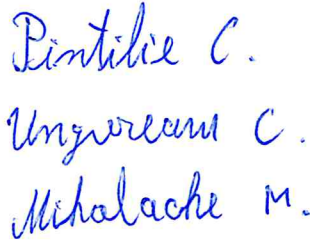 Pintilie C.
Ungureanu C.
Mihalache M.